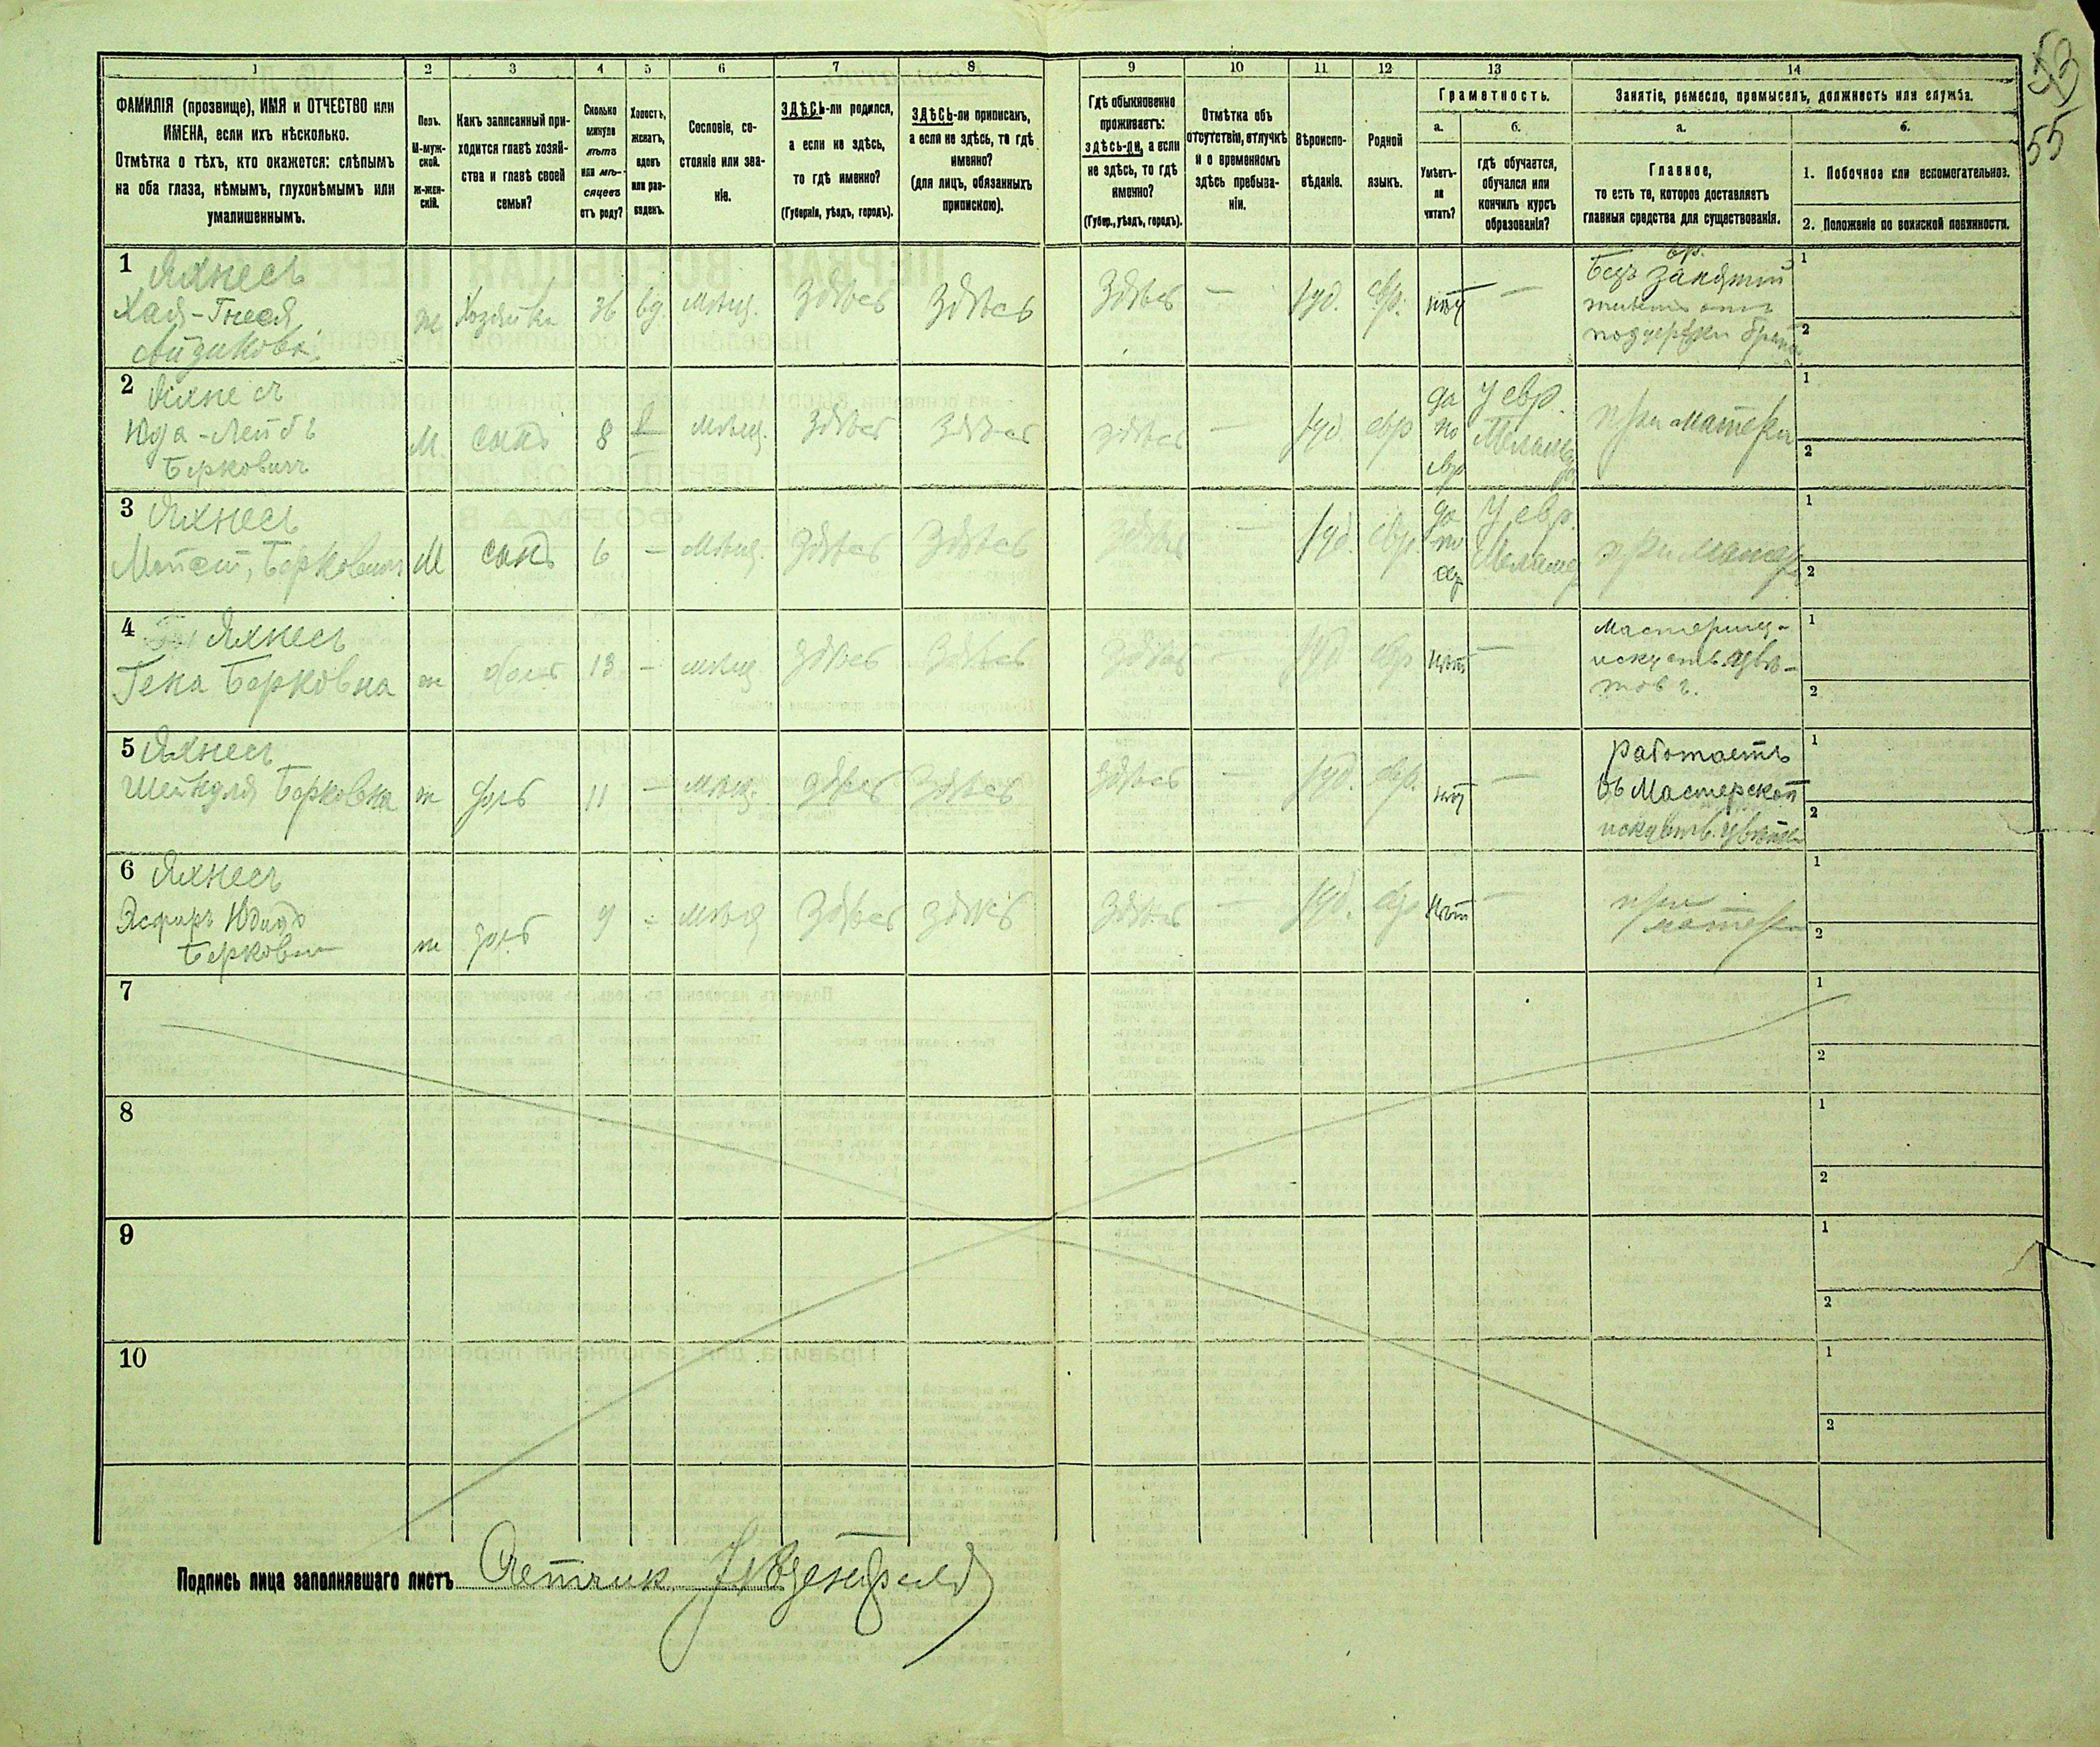 53
55
1 2 3 4 5 6 7 8 9 10 11 12 13 14
ФАМИЛІЯ (прозвище), ИМЯ и ОТЧЕСТВО или
ИМЕНА, если ихъ нѣсколько.
Отмѣтка о тѣхъ, кто окажется: слѣпымъ
на оба глаза, нѣмымъ, глухонѣмымъ или
умалишеннымъ.
Полъ.
М-муж-
ской.
Ж-жен-
скій.
Какъ записанный при-
ходится главѣ хозяй-
ства и главѣ своей
семьи?
Сколько
минуло
лѣтъ
или мѣ-
сяцевъ
отъ роду?
Холостъ,
женатъ,
вдовъ
или раз-
веденъ.
Сословіе, со-
стояніе или зва-
ніе.
ЗДѢСЬ-ли родился,
а если не здѣсь,
то гдѣ именно?
(Губернія, уѣздъ, городъ).
ЗДѢСЬ-ли приписанъ,
а если не здѣсь, то гдѣ
именно?
(для лицъ, обязанныхъ
припискою).
Гдѣ обыкновенно
проживаетъ:
здѣсь-ли, а если
не здѣсь, то гдѣ
именно?
(Губер., уѣздъ, городъ).
Отмѣтка объ
отсутствіи, отлучкѣ
и о временномъ
здѣсь пребыва-
ніи.
Вѣроиспо-
вѣданіе.
Родной
языкъ.
Грамотность.
а.
Умѣетъ-
ли
читать?
б.
гдѣ обучается,
обучался или
кончилъ курсъ
образованія?
Занятіе, ремесло, промыселъ, должность или служба.
а.
Главное,
то есть то, которое доставляетъ
главныя средства для существованія.
б.
1. Побочное или вспомогательное.
2. Положеніе по воинской повинности.
1 Яхнесъ
Хая-Гнеся
Айзикова
ж Хозяйка 36 вд. мѣщ. Здѣсь Здѣсь Здѣсь — Іуд. евр. нѣт —
Безъ занятій
живетъ отъ
поддержки
1
2
2 Яхнесъ
Юда-Лейбъ
Берковичъ
М. сынъ 8 мѣщ. Здѣсь Здѣсь здѣсь — Іуд. евр
да
по
евр
У евр.
при матери
1
2
3 Яхнесъ
Берковичъ М сынъ 6 — мѣщ. Здѣсь Здѣсь Здѣсь — Іуд. евр.
да
по
евр
У евр.
Меламед
при матери
1
2
4 Яхнесъ
Берковна ж дочь 13 — мѣщ Здѣсь Здѣсь Здѣсь — Іуд евр нѣт —
Мастерица
искуств. цвѣ-
товъ.
1
2
5 Яхнесъ
Шейндля Берковна ж дочь 11 — мѣщ. здѣсь Здѣсь Здѣсь — Іуд. евр. нѣт —
Работаетъ
въ Мастерской
искуств. цвѣтовъ
1
2
6 Яхнесъ
Берковн
ж дочь мѣщ Здѣсь здѣсь Здѣсь — Іуд. евр нѣт —
при
матери
1
2
7 1
2
8 1
2
9 1
2
10 1
2
Подпись лица заполнявшаго листъ Счетчик